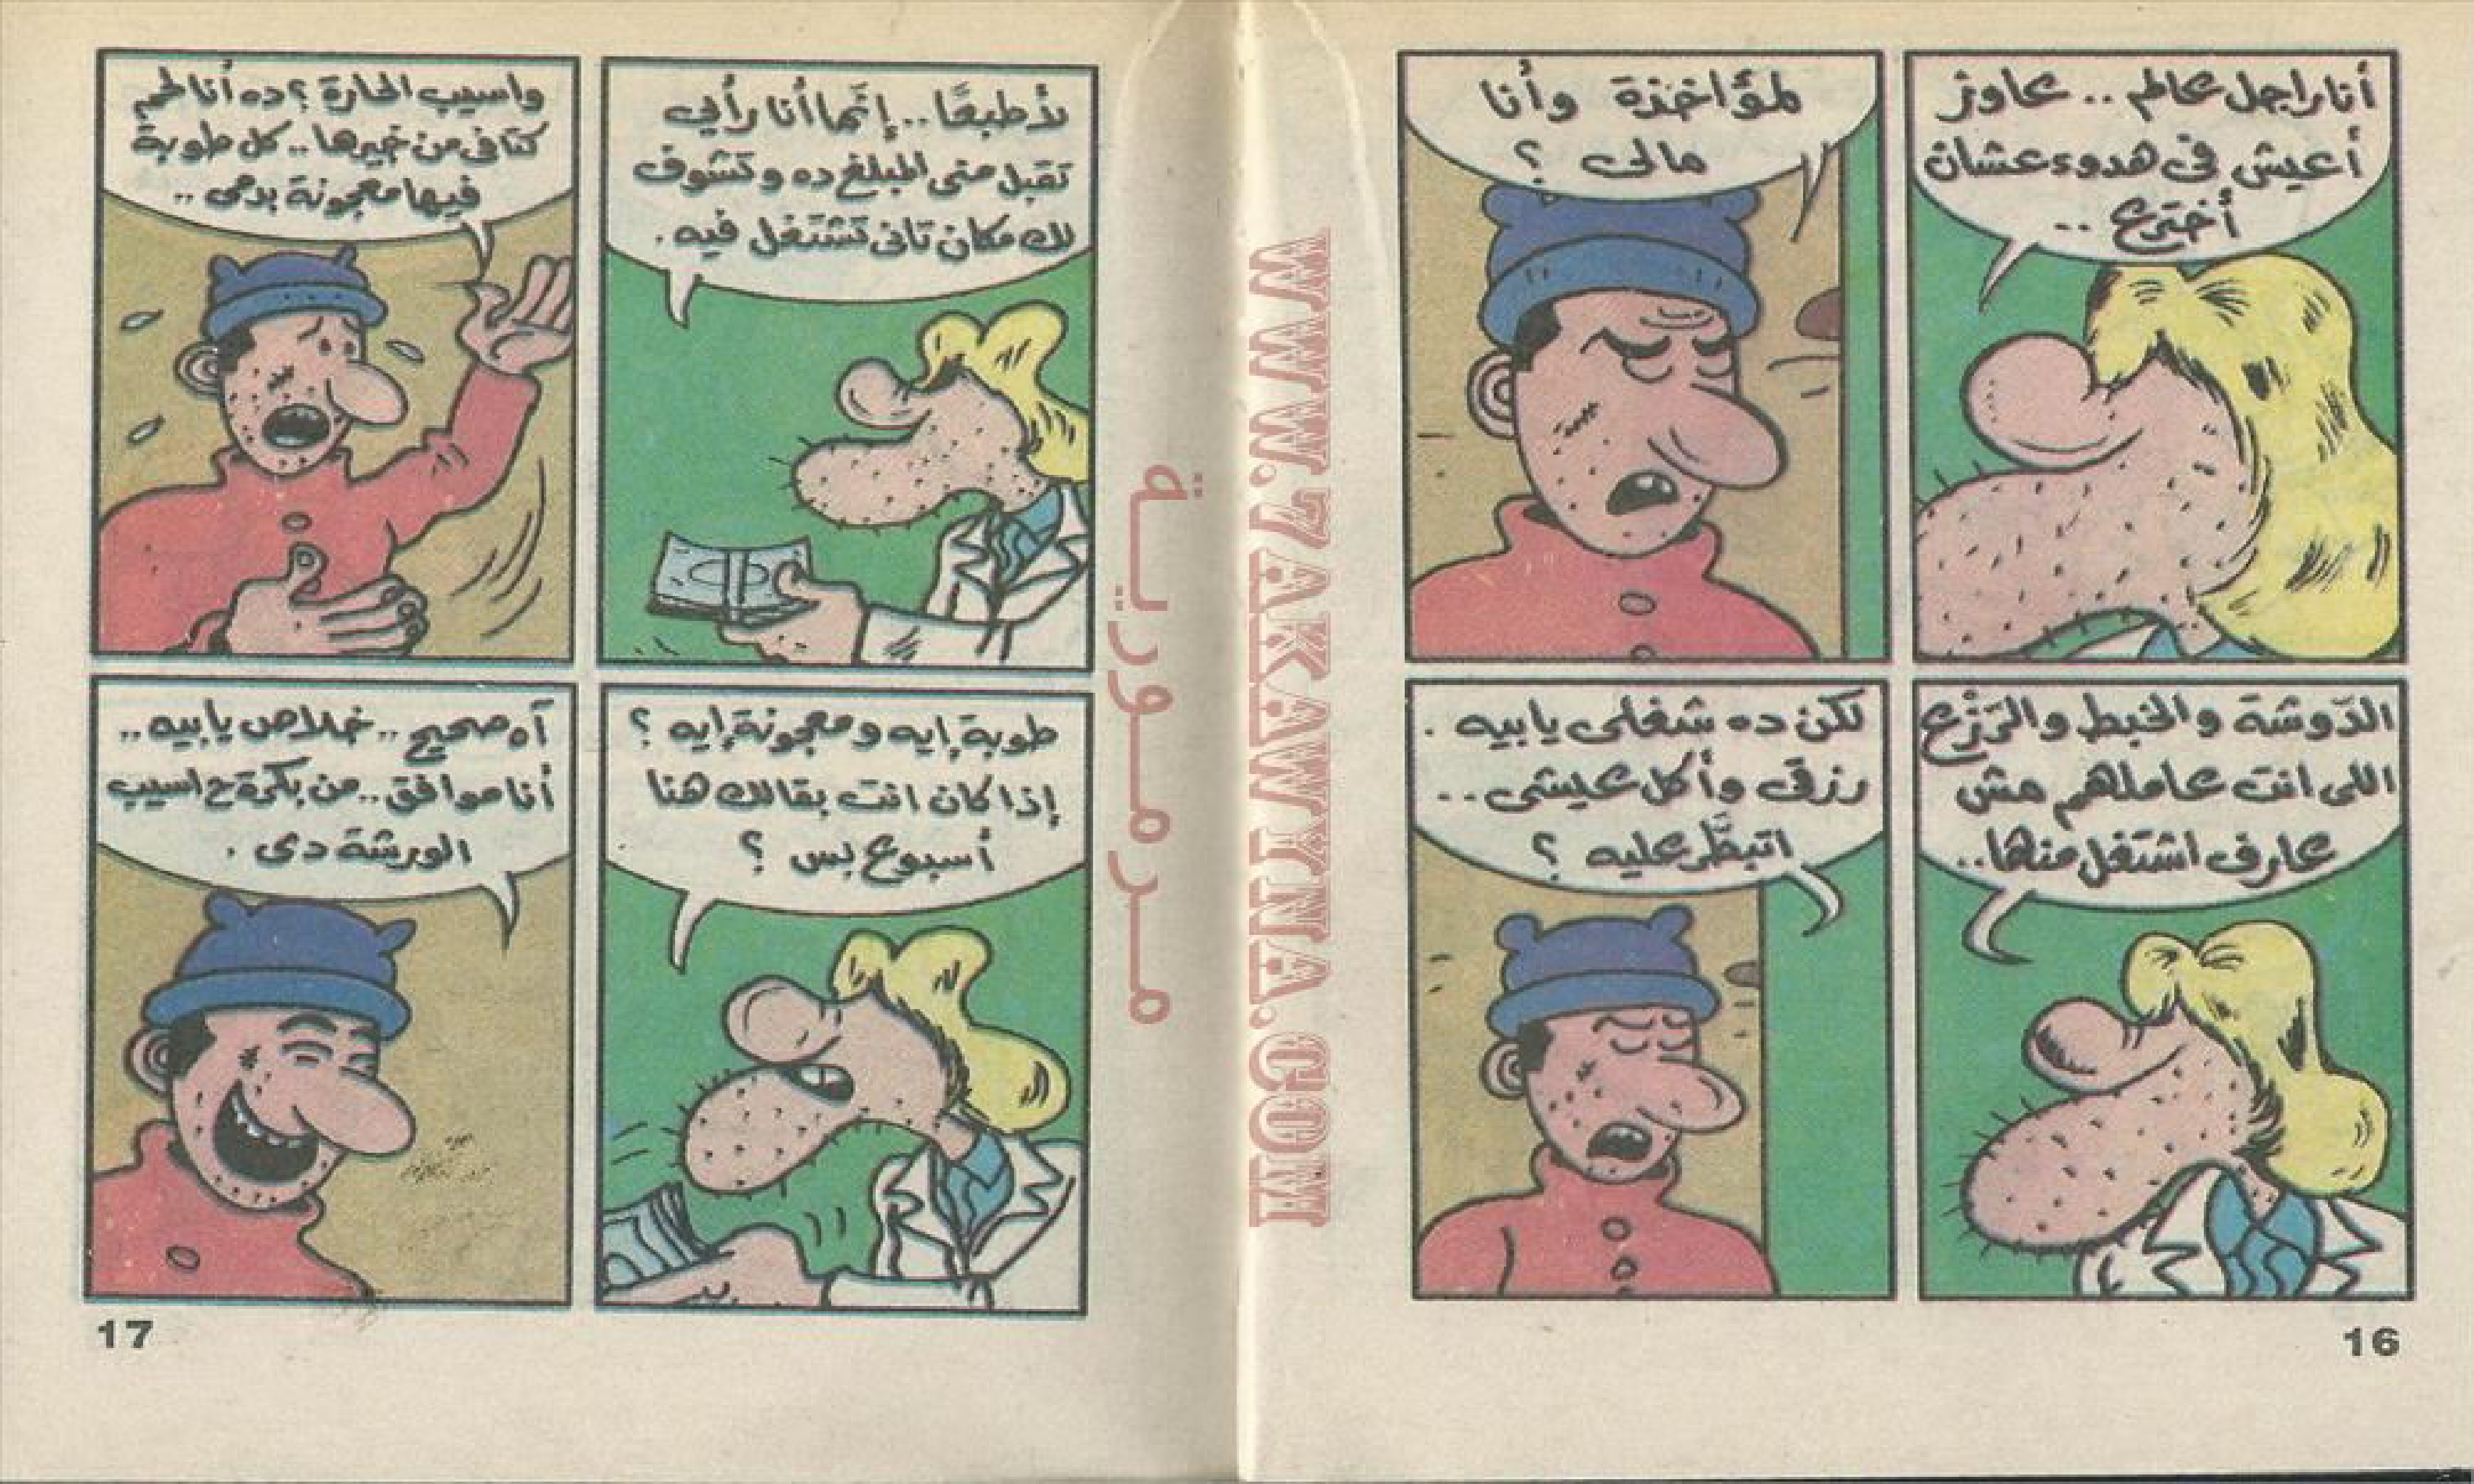 أنا راجل عالم .. عاوز
أعيش فى هدوء عشان
أخترع ..
لمؤاخذة وأنا
مالى ؟
الدّوشة والخبط والرّزْع
اللى انت عاملهم مش
عارف اشتغل منها..
لكن ده شغلى يابيه .
رزقى وأكل عيشى ..
اتبطَّر عليه ؟
لأ طبعًا .. إنَّما أنا رأيى
تقبل منى المبلغ ده وتشوف
لك مكان تانى تشتغل فيه .
واسيب الحارة ؟ ده أنا لحم
كتافى من خيرها .. كل طوبة
فيها معجونة بدمى ..
طوبة إيه ومعجونة إيه ؟
إذا كان انت بقالك هنا
أسبوع بس ؟
آه صحيح .. خلاص يابيه ..
أنا موافق .. من بكرة ح اسيب
الورشة دى .
16
17
مرمورية
WWW.7AKAWYNA.COM